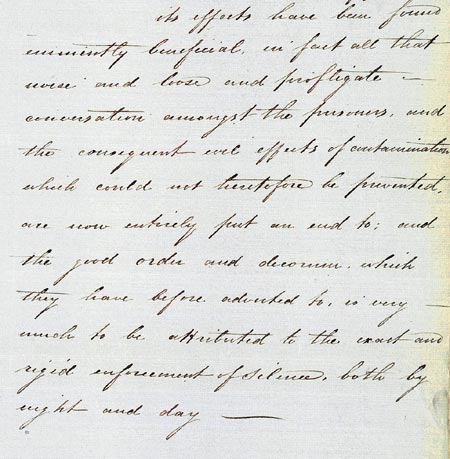 its effects have been found
eminently beneficial, in fact all that
noise and loose and profligate —
conversation amongst the prisoners, and
the consequent evil effects of contamination
which could not heretofore be prevented,
are now entirely put an end to; and
the good order and decorum, which
they have before adverted to, is very —
much to be attributed to the exact and
rigid enforcement of silence, both by
night and day —